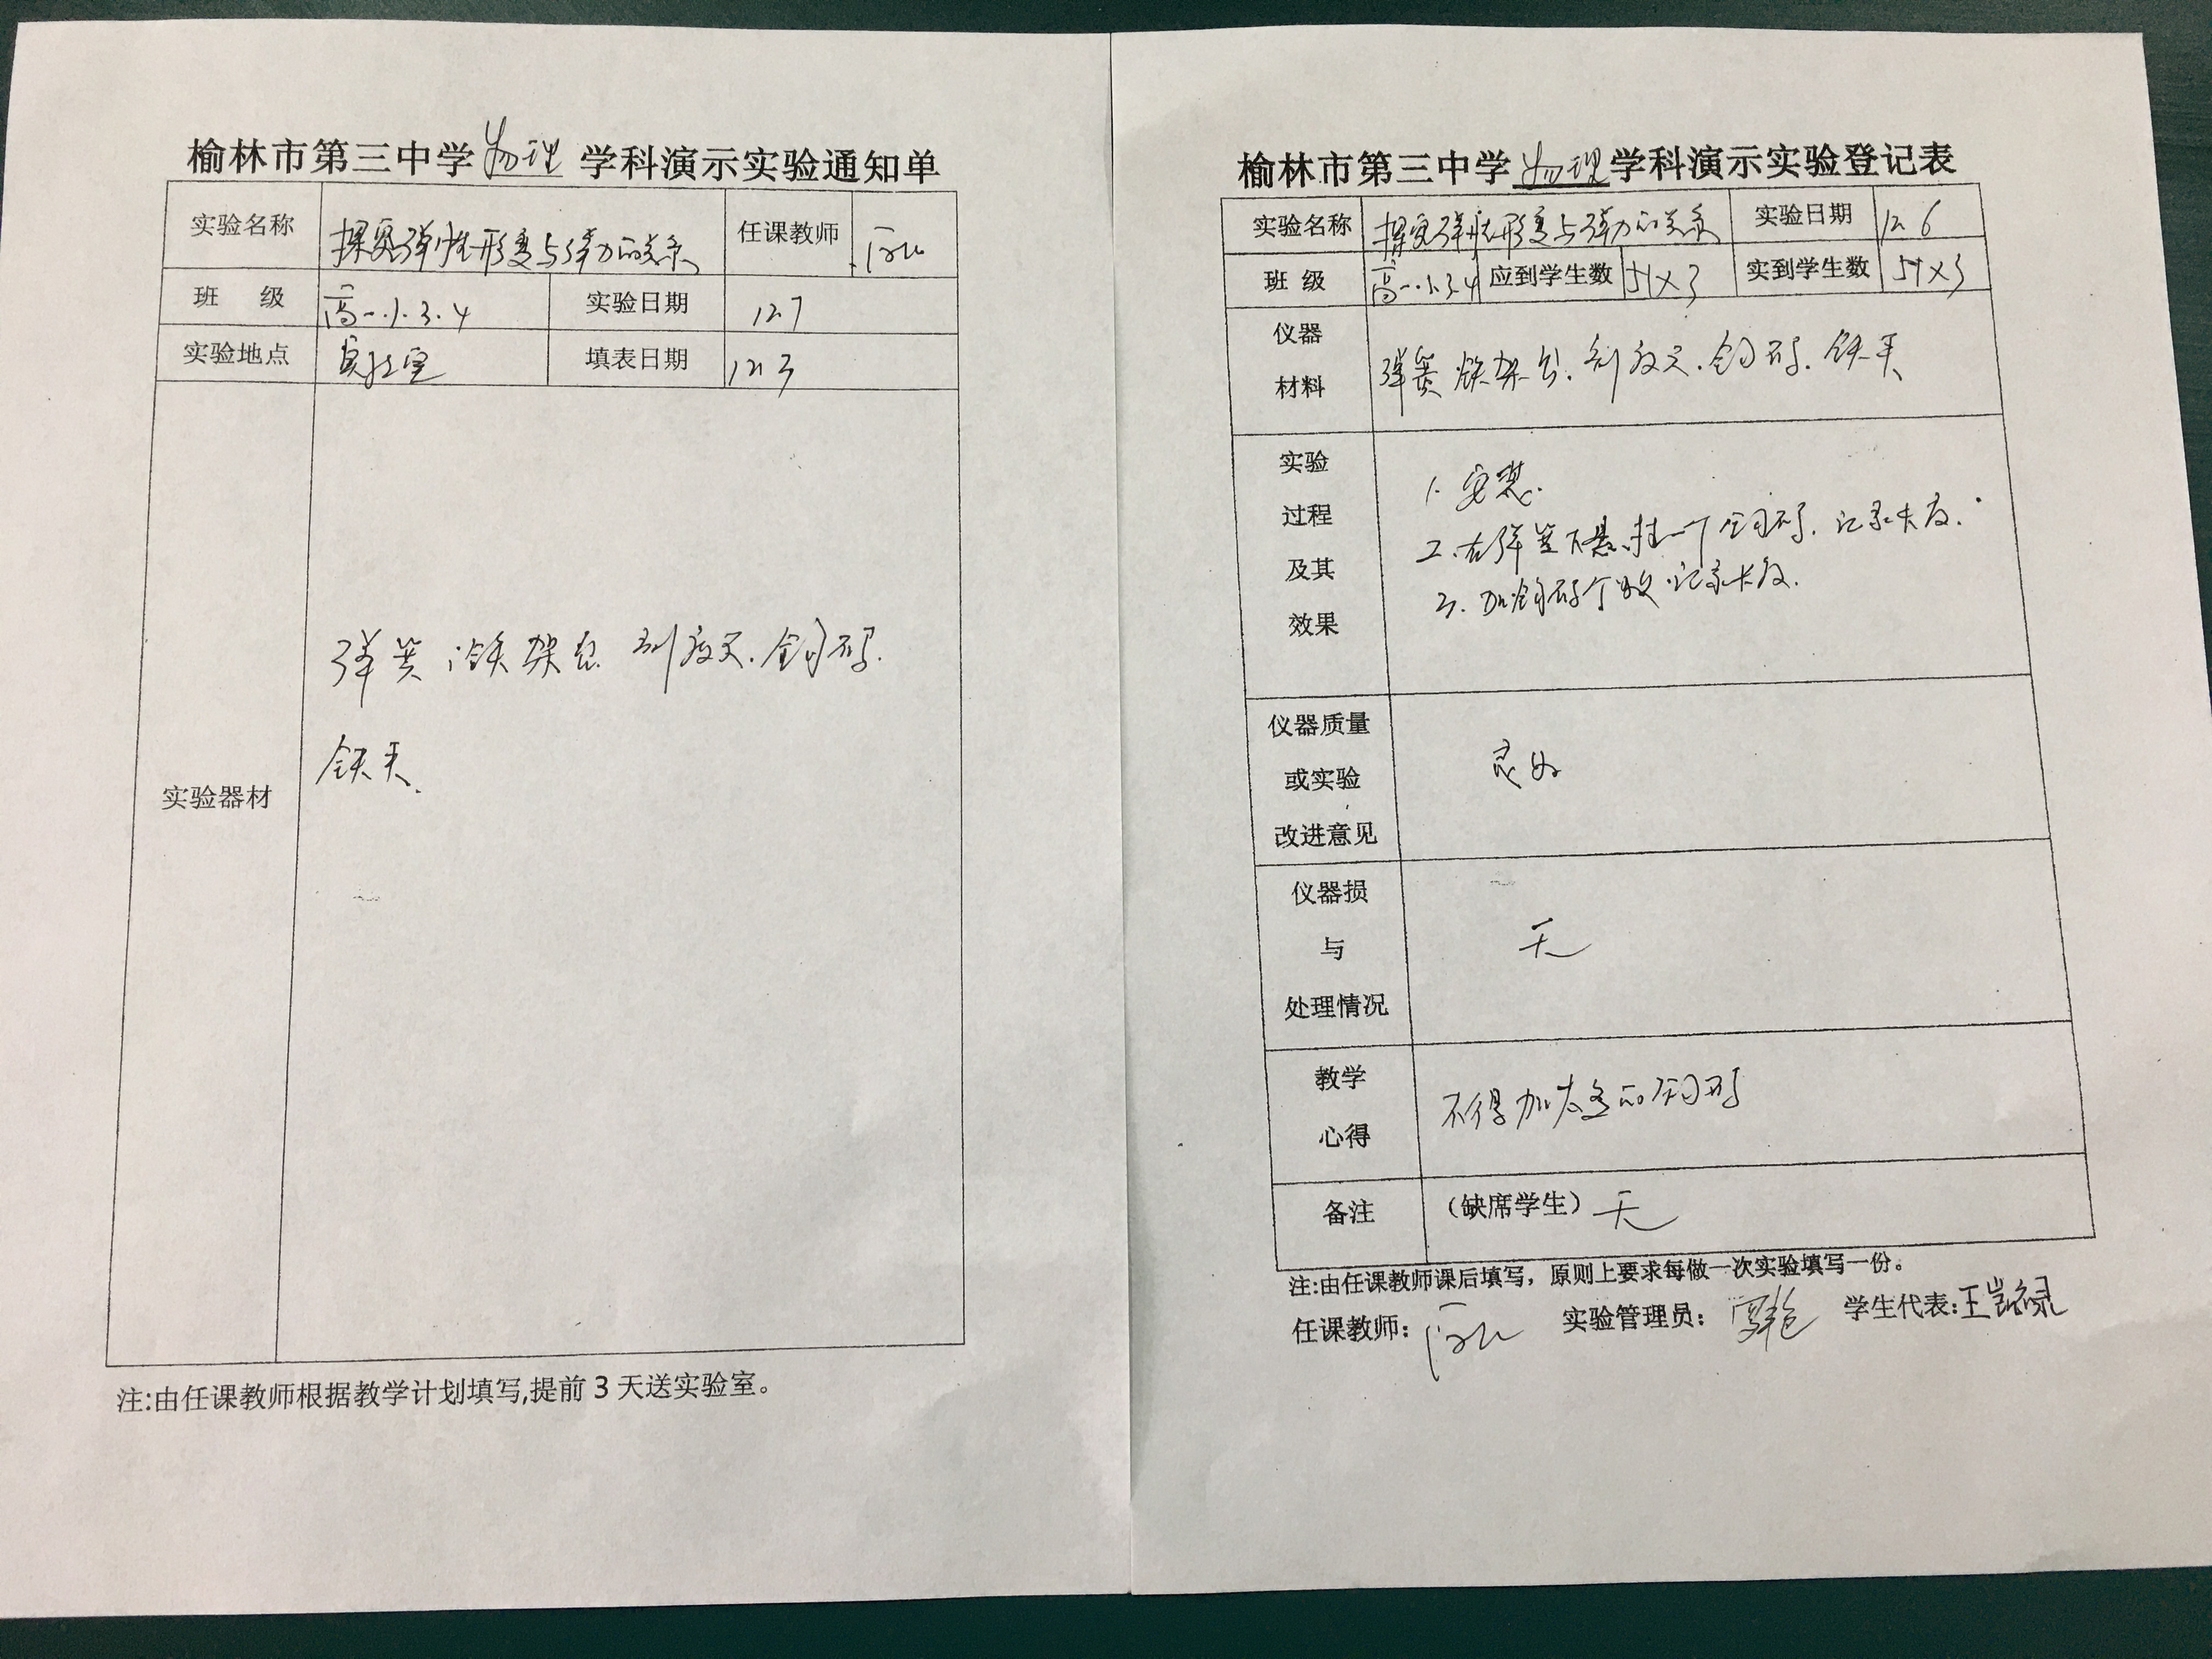 榆林市第三中学物理学科演示实验通知单
实验名称 探究弹性形变与弹力的关系 任课教师
班 级 高一.1.3.4 实验日期 12.7
实验地点 实验室 填表日期 12.3
实验器材
弹簧 铁架台 刻度尺.钩码.
铁夹.
注:由任课教师根据教学计划填写,提前3天送实验室。
榆林市第三中学物理学科演示实验登记表
实验名称 探究弹性形变与弹力的关系 实验日期 12.6
班 级 高一.1.3.4 应到学生数 51×3 实到学生数 51×3
仪器
材料
弹簧 铁架台.刻度尺.钩码.铁夹
实验
过程
及其
效果
1.安装.
2.在弹簧下悬挂一个钩码.记录长度.
3.加钩码个数.记录长度.
仪器质量
或实验
改进意见
良好
仪器损
与
处理情况
无
教学
心得
不得加太多的钩码
备注 （缺席学生）无
注:由任课教师课后填写，原则上要求每做一次实验填写一份。
任课教师: 实验管理员: 学生代表:王